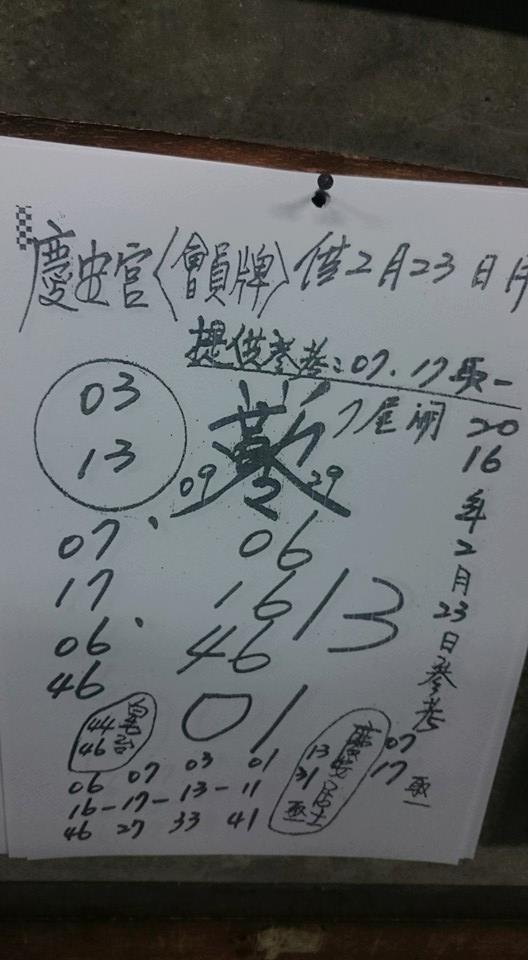 慶安宮〈會員牌〉供2月23日
提供參考：07、17取一
7尾開
03
13
09 29
07、
17
06、
46
06
16
46
13
01
2016年2月23日參考
07
17 取一
44
46
06 07 03 01
16-17-13-11
46 27 33 41
13
31
居士